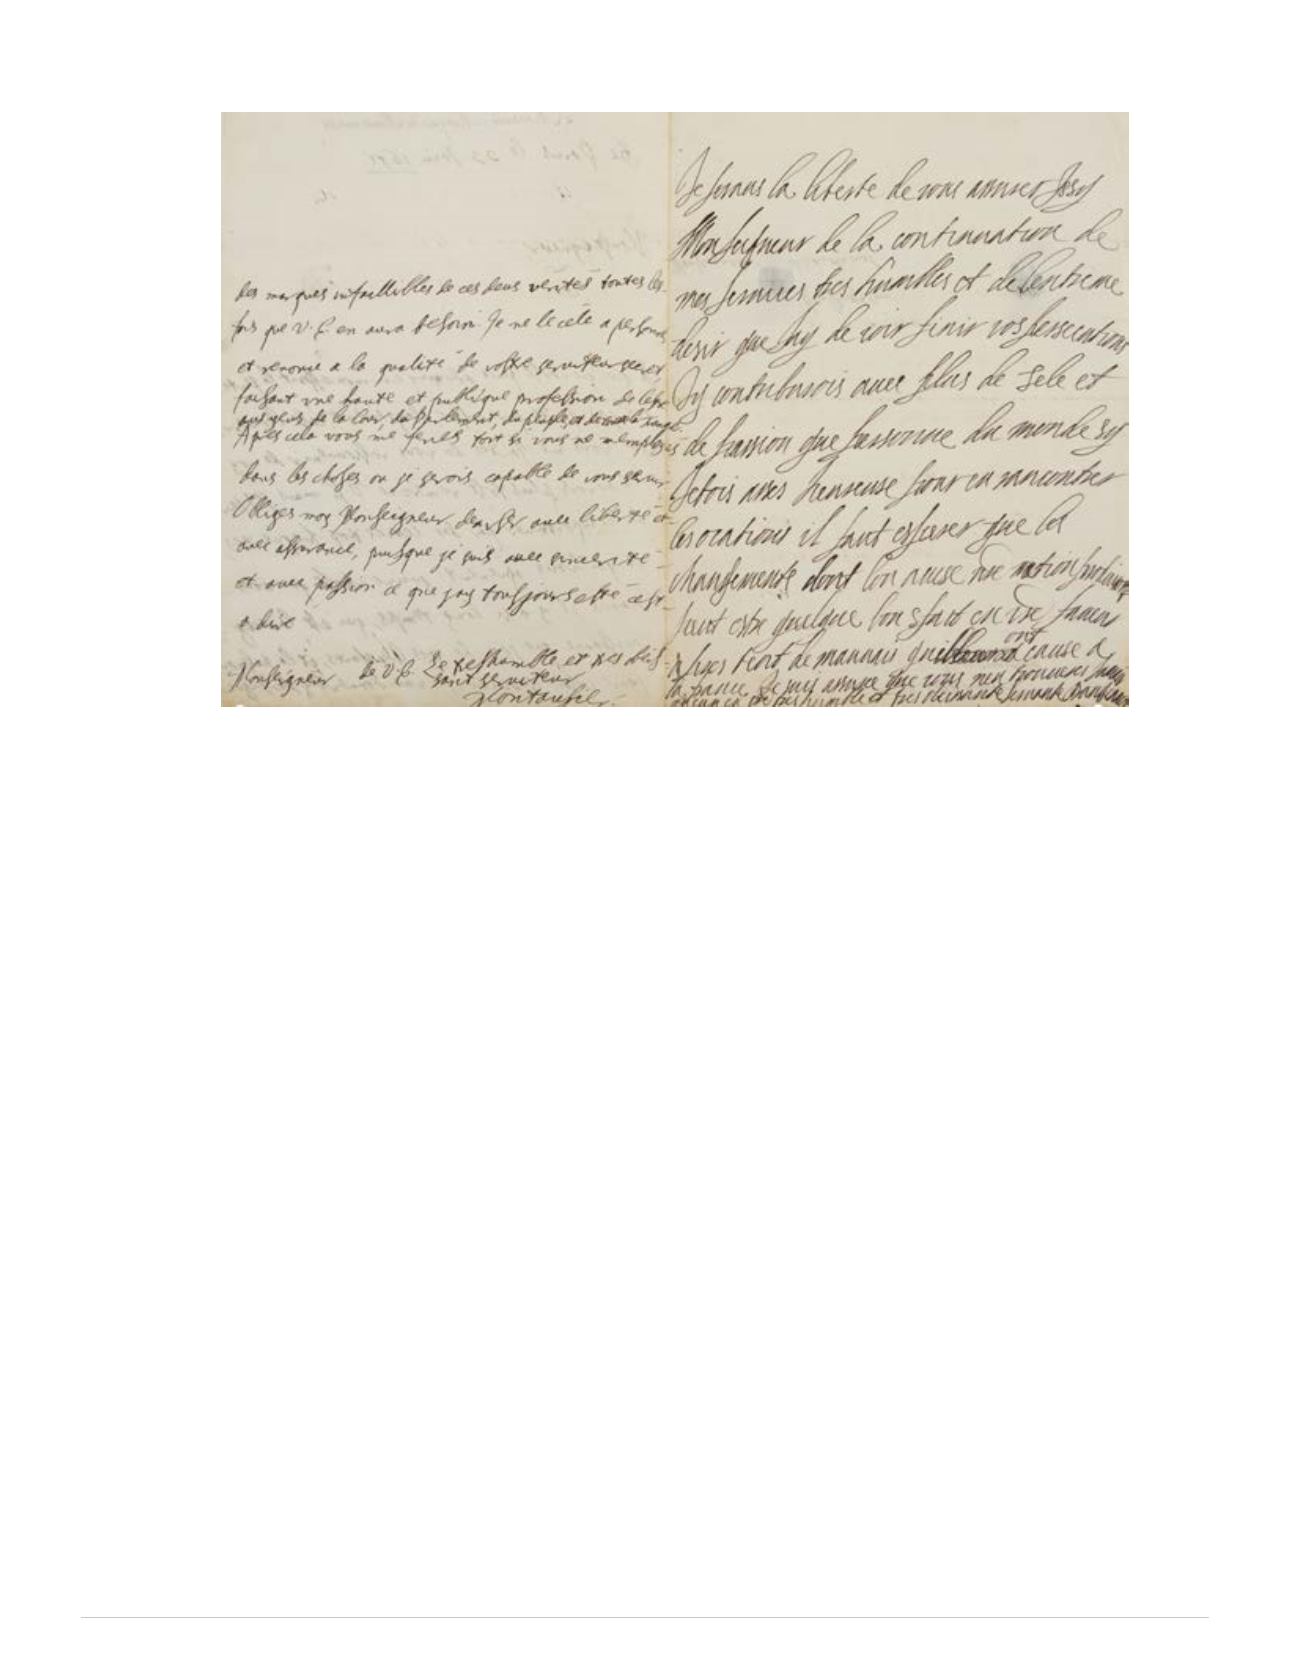 des marques infaillibles de ces deus verités toutes les
fois que V. E. en aura besoin. Je ne le cele a personne
et renonce a la qualité de vostre serviteur secret,
faisant une haute et publique profession de l'estre
aus yeus de la Cour, du parlement, du peuple, et de
Apres cela vous me feriés tort si vous ne m'emploiyés
dans les choses ou je serois capable de vous servir
Obliges moy Monseigneur d'en user avec liberté et
avec assurance, puisque je suis avec sincerité
et avec passion ce que j'ay tousjours esté c'est
a dire
Monseigneur de V. E. Le tres humble et tres obeis-
sant serviteur
Montausier
Je prenas la liberte de vous assurer Issy
Monseigneur de la continuation de
mes services tres humbles et de lentreme
desir que jay de voir finir vos persecutions
Jy contriburois avec plus de zele et
de passion que personne du monde sy
Jetois asses heureuse pour en rancontrer
les ocations il faut esperer que les
changements dont lon acuse nre nation
faut estre quelque bon en vre faveur
apres tent de mauvais ont cause a
la france Je suis assuree que vous nen trouveres